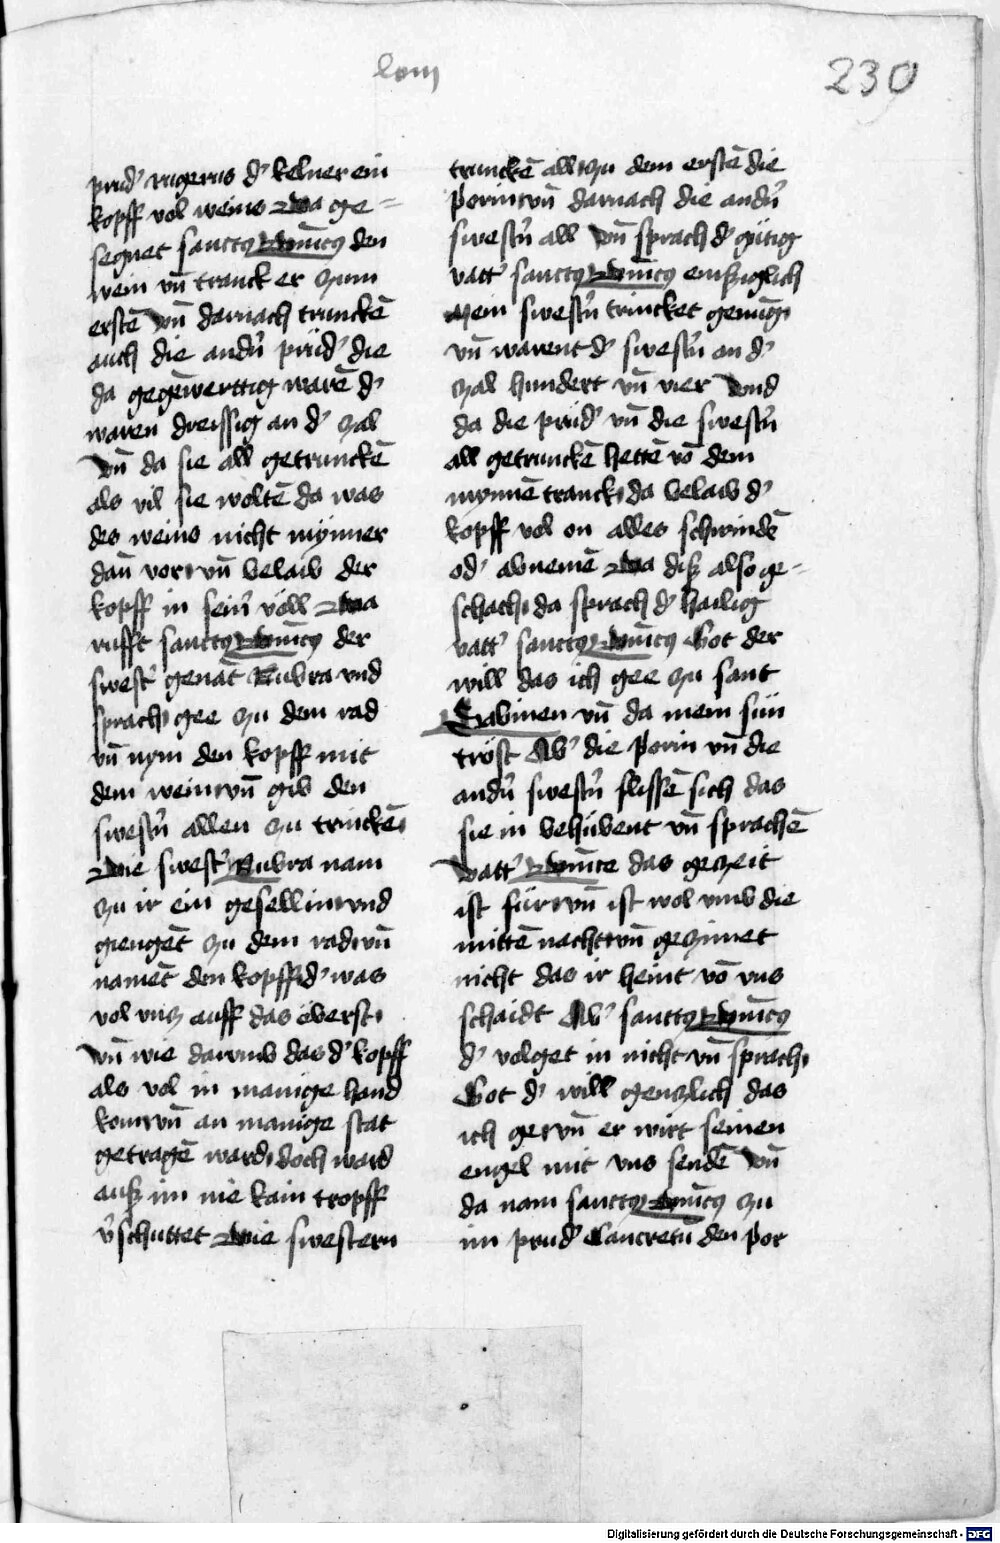 lviij
230
prud' rugerus d' kelner ein
kopff vol weins Da ge=
segnet sanctus Dominicus den
wein vn̄ tranck er zum
erstē vn̄ darnach trunckē
auch die and'n prüd' die
da gegēwerttig warē d'
waren dreissig an d' zal
Vn̄ da sie all getrunckē
als vil sie woltē da was
des weins nicht mynner
dan̄ vor vn̄ belaib der
kopff in sein' völl Da
rufft sanctus Dominicus der
swest' genāt Nubra vnd
sprach gee zu dem rad
vn̄ nym den kopff mit
dem wein vn̄ gib den
swest'n allen zu trinckē
Die swest' Nubra nam
zu ir ein gesellin vnd
giengēt zu dem rad vn̄
namēt den kopff d' was
vol vntz auff das öberst
Vn̄ wie darumb das d' kopff
als vol in manige hand
kom vn̄ an manige stat
getragē ward doch ward
auß im nie kain tropff
v'schuttet Die swestern
trunckē all zu dem erstē die
Porin vn̄ darnach die and'n
swest'n all Vn̄ sprach d' gütig
vatt' sanctus Dominicus emßiglich
Mein swest'n trincket genūg
vn̄ warent d' swest'n an d'
zal hundert vn̄ vier Vnd
da die prüd' vn̄ die swest'n
all getrunckē hettē vō dem
mynnē tranck da belaib d'
kopff vol on alles schwindē
od' abnemē Da diß also ge=
schach da sprach d' hailig
vatt' sanctus Dominicus Got der
will das ich gee zu sant
Sabinen vn̄ da mein sün
tröst Ab' die Porin vn̄ die
and'n swest'n flissē sich das
sie in behübent vn̄ sprachē
Vatt' Dominice das gezeit
ist für vn̄ ist wol vmb die
mittē nacht vn̄ gezimet
nicht das ir heint vō vns
schaidt Ab' sanctus Dominicus
d' volget in nicht vn̄ sprach
Got d' will gentzlich das
ich ge vn̄ er wirt seinen
engel mit vns sendē Vn̄
da nam sanctus Dominicus zu
im prud' Tancretū den Por
Digitalisierung gefördert durch die Deutsche Forschungsgemeinschaft - DFG